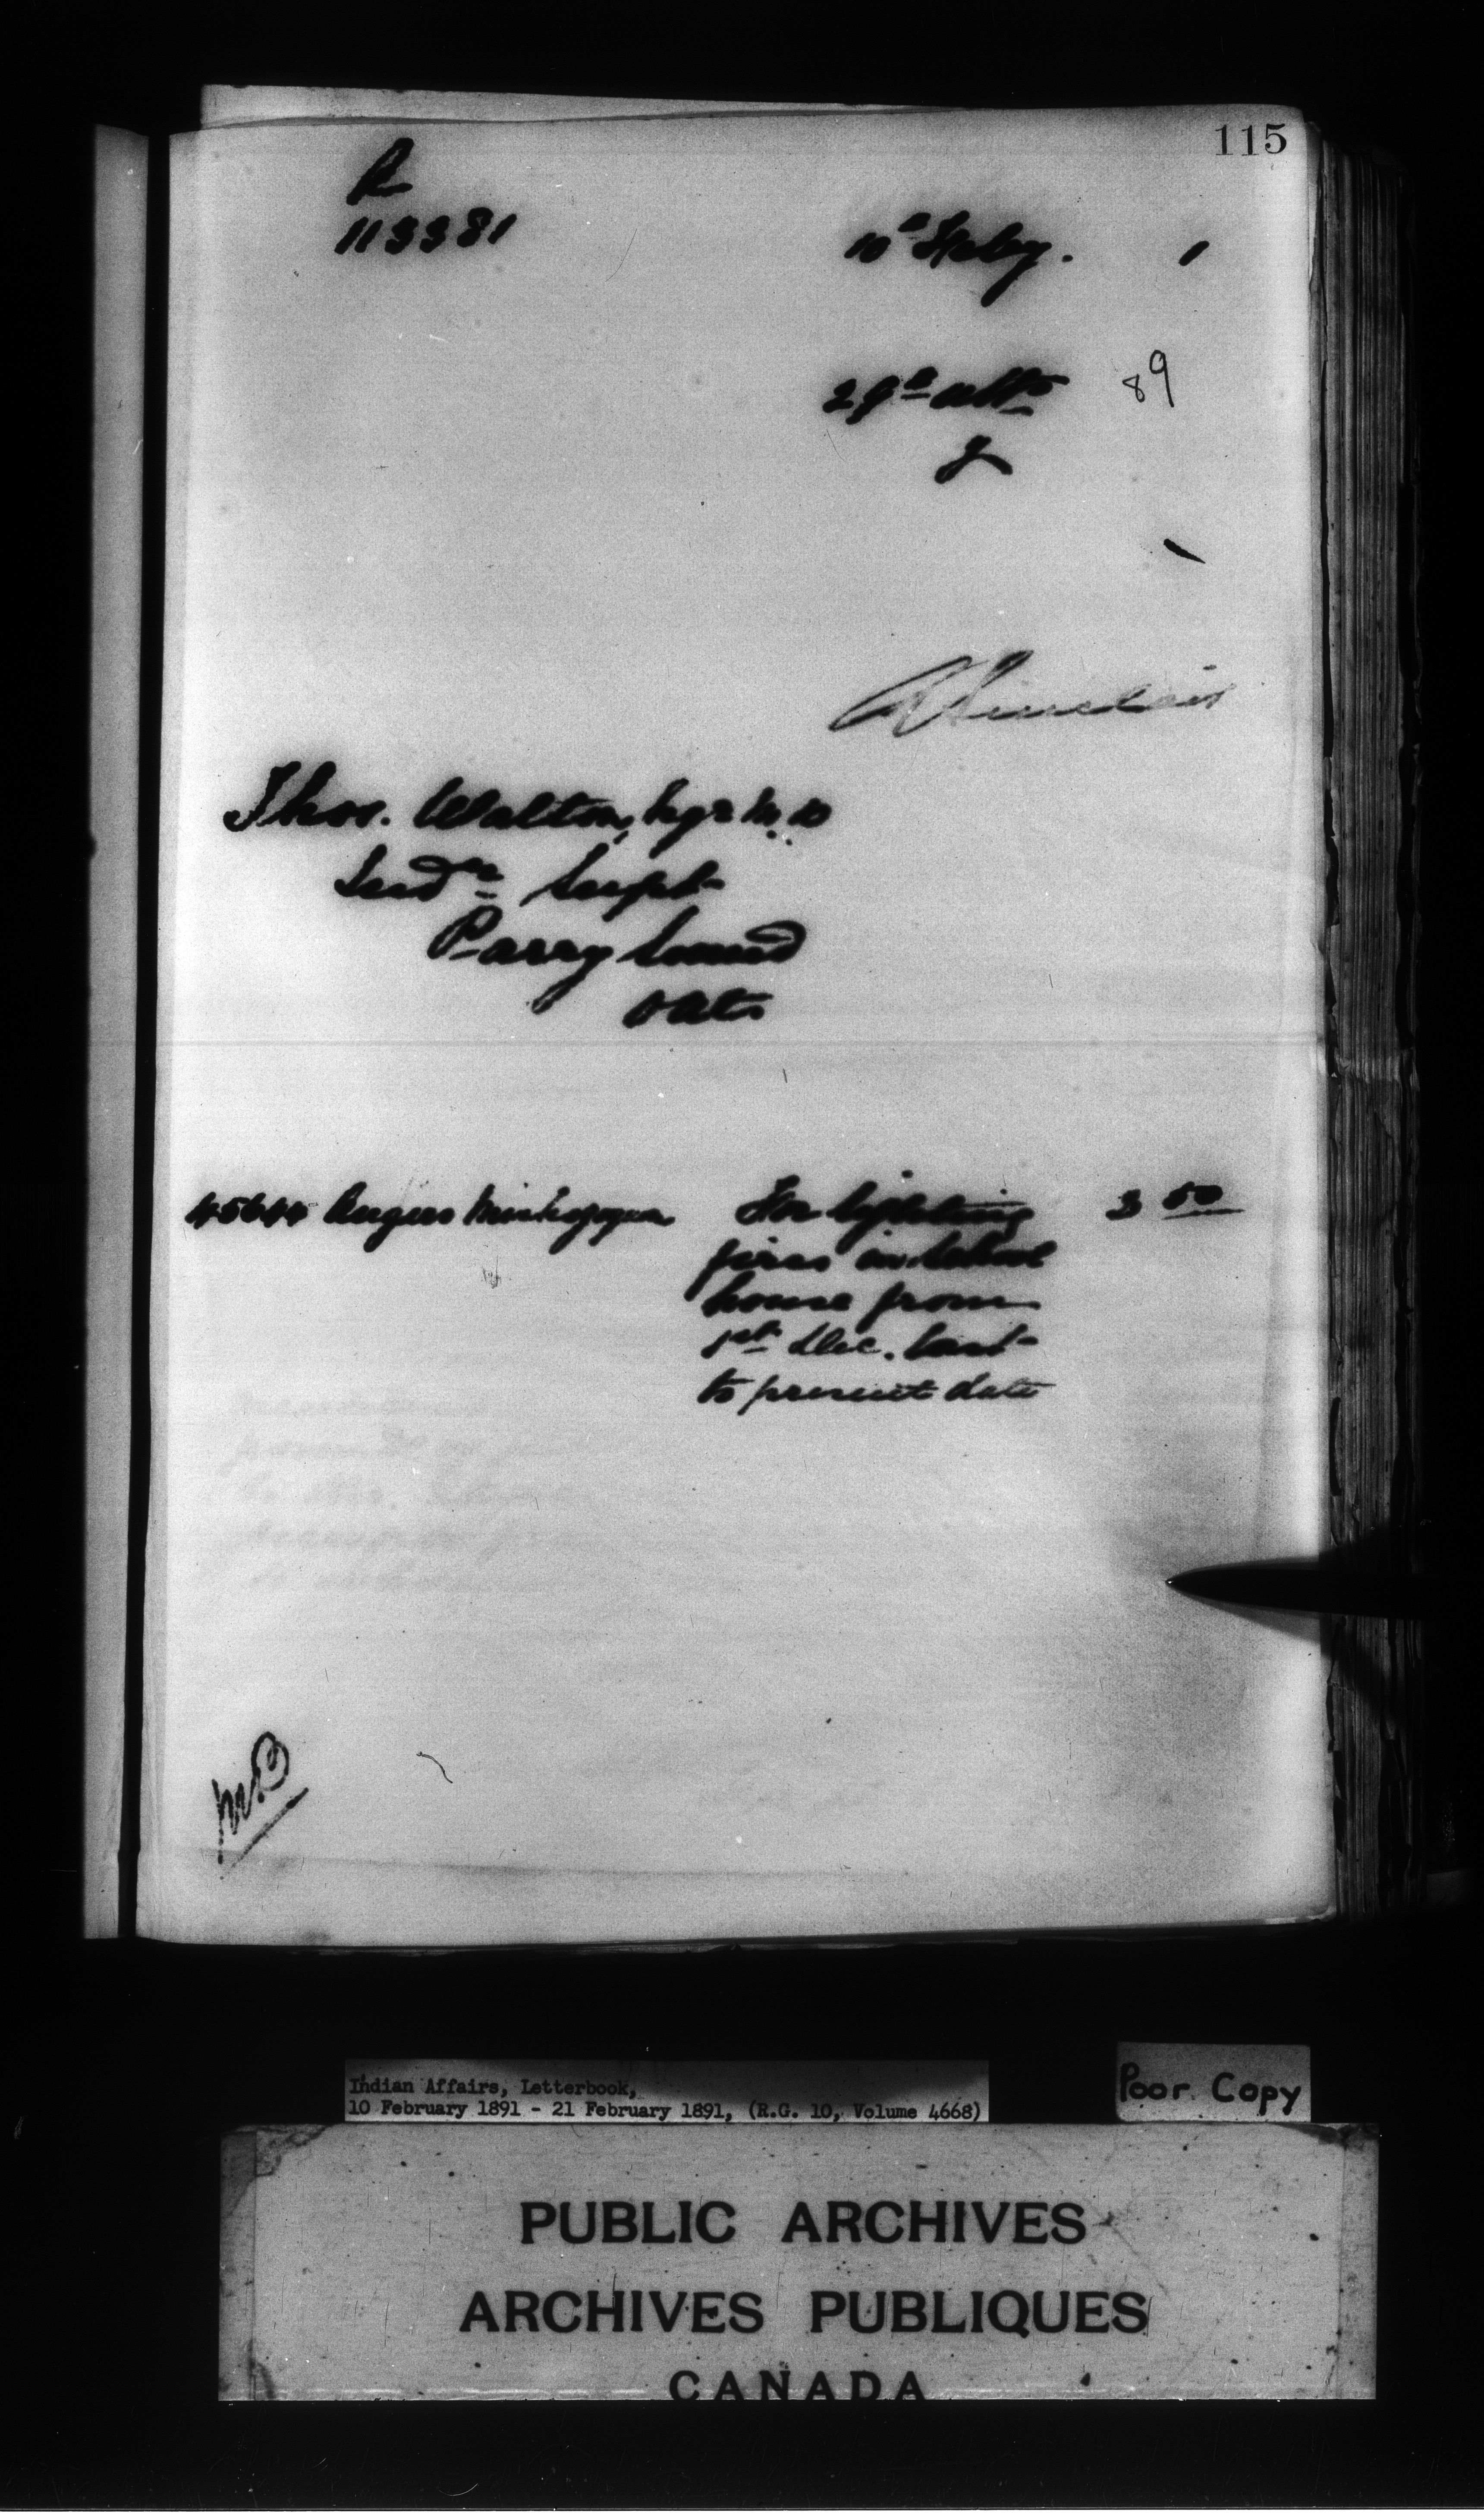 115
R
113381
10th Feby. 1
29th ulto 89
J
A Sinclair
Thos. Walton, Esqr M.D
Indn Supt
Parry Sound
Ont
45644 Angus For lighting 3 50
fires in School
house from
1st Dec. last
to present date
M.B
Indian Affairs, Letterbook,
10 February 1891 - 21 February 1891, (R.G. 10, Volume 4668)
Poor Copy
PUBLIC ARCHIVES
ARCHIVES PUBLIQUES
CANADA